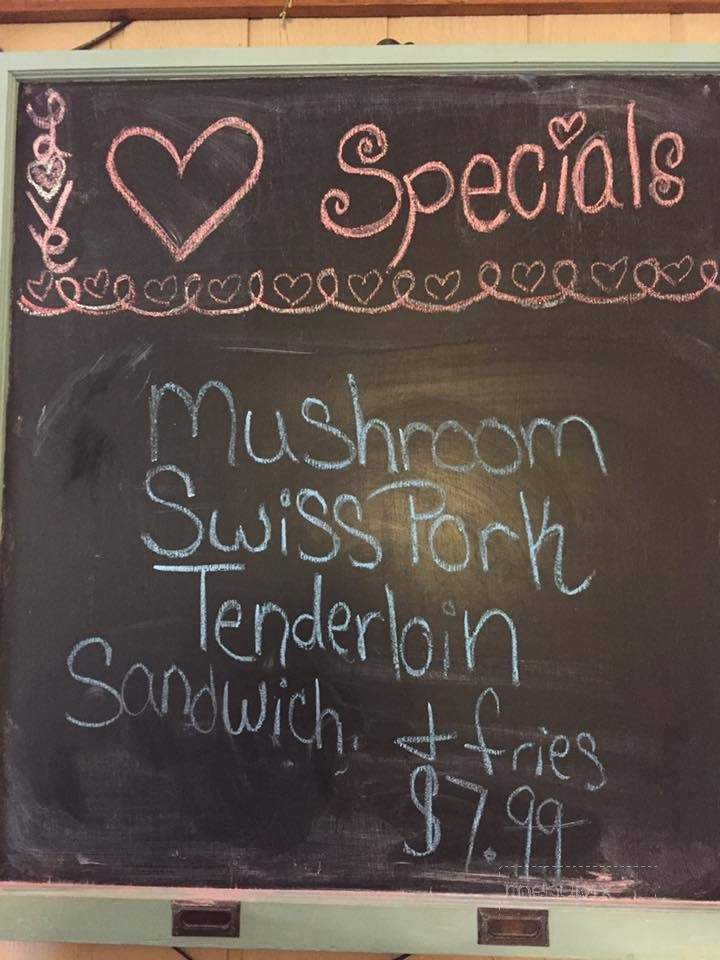 Specials
Mushroom
Swiss Pork
Tenderloin
Sandwich. + fries
$7.99